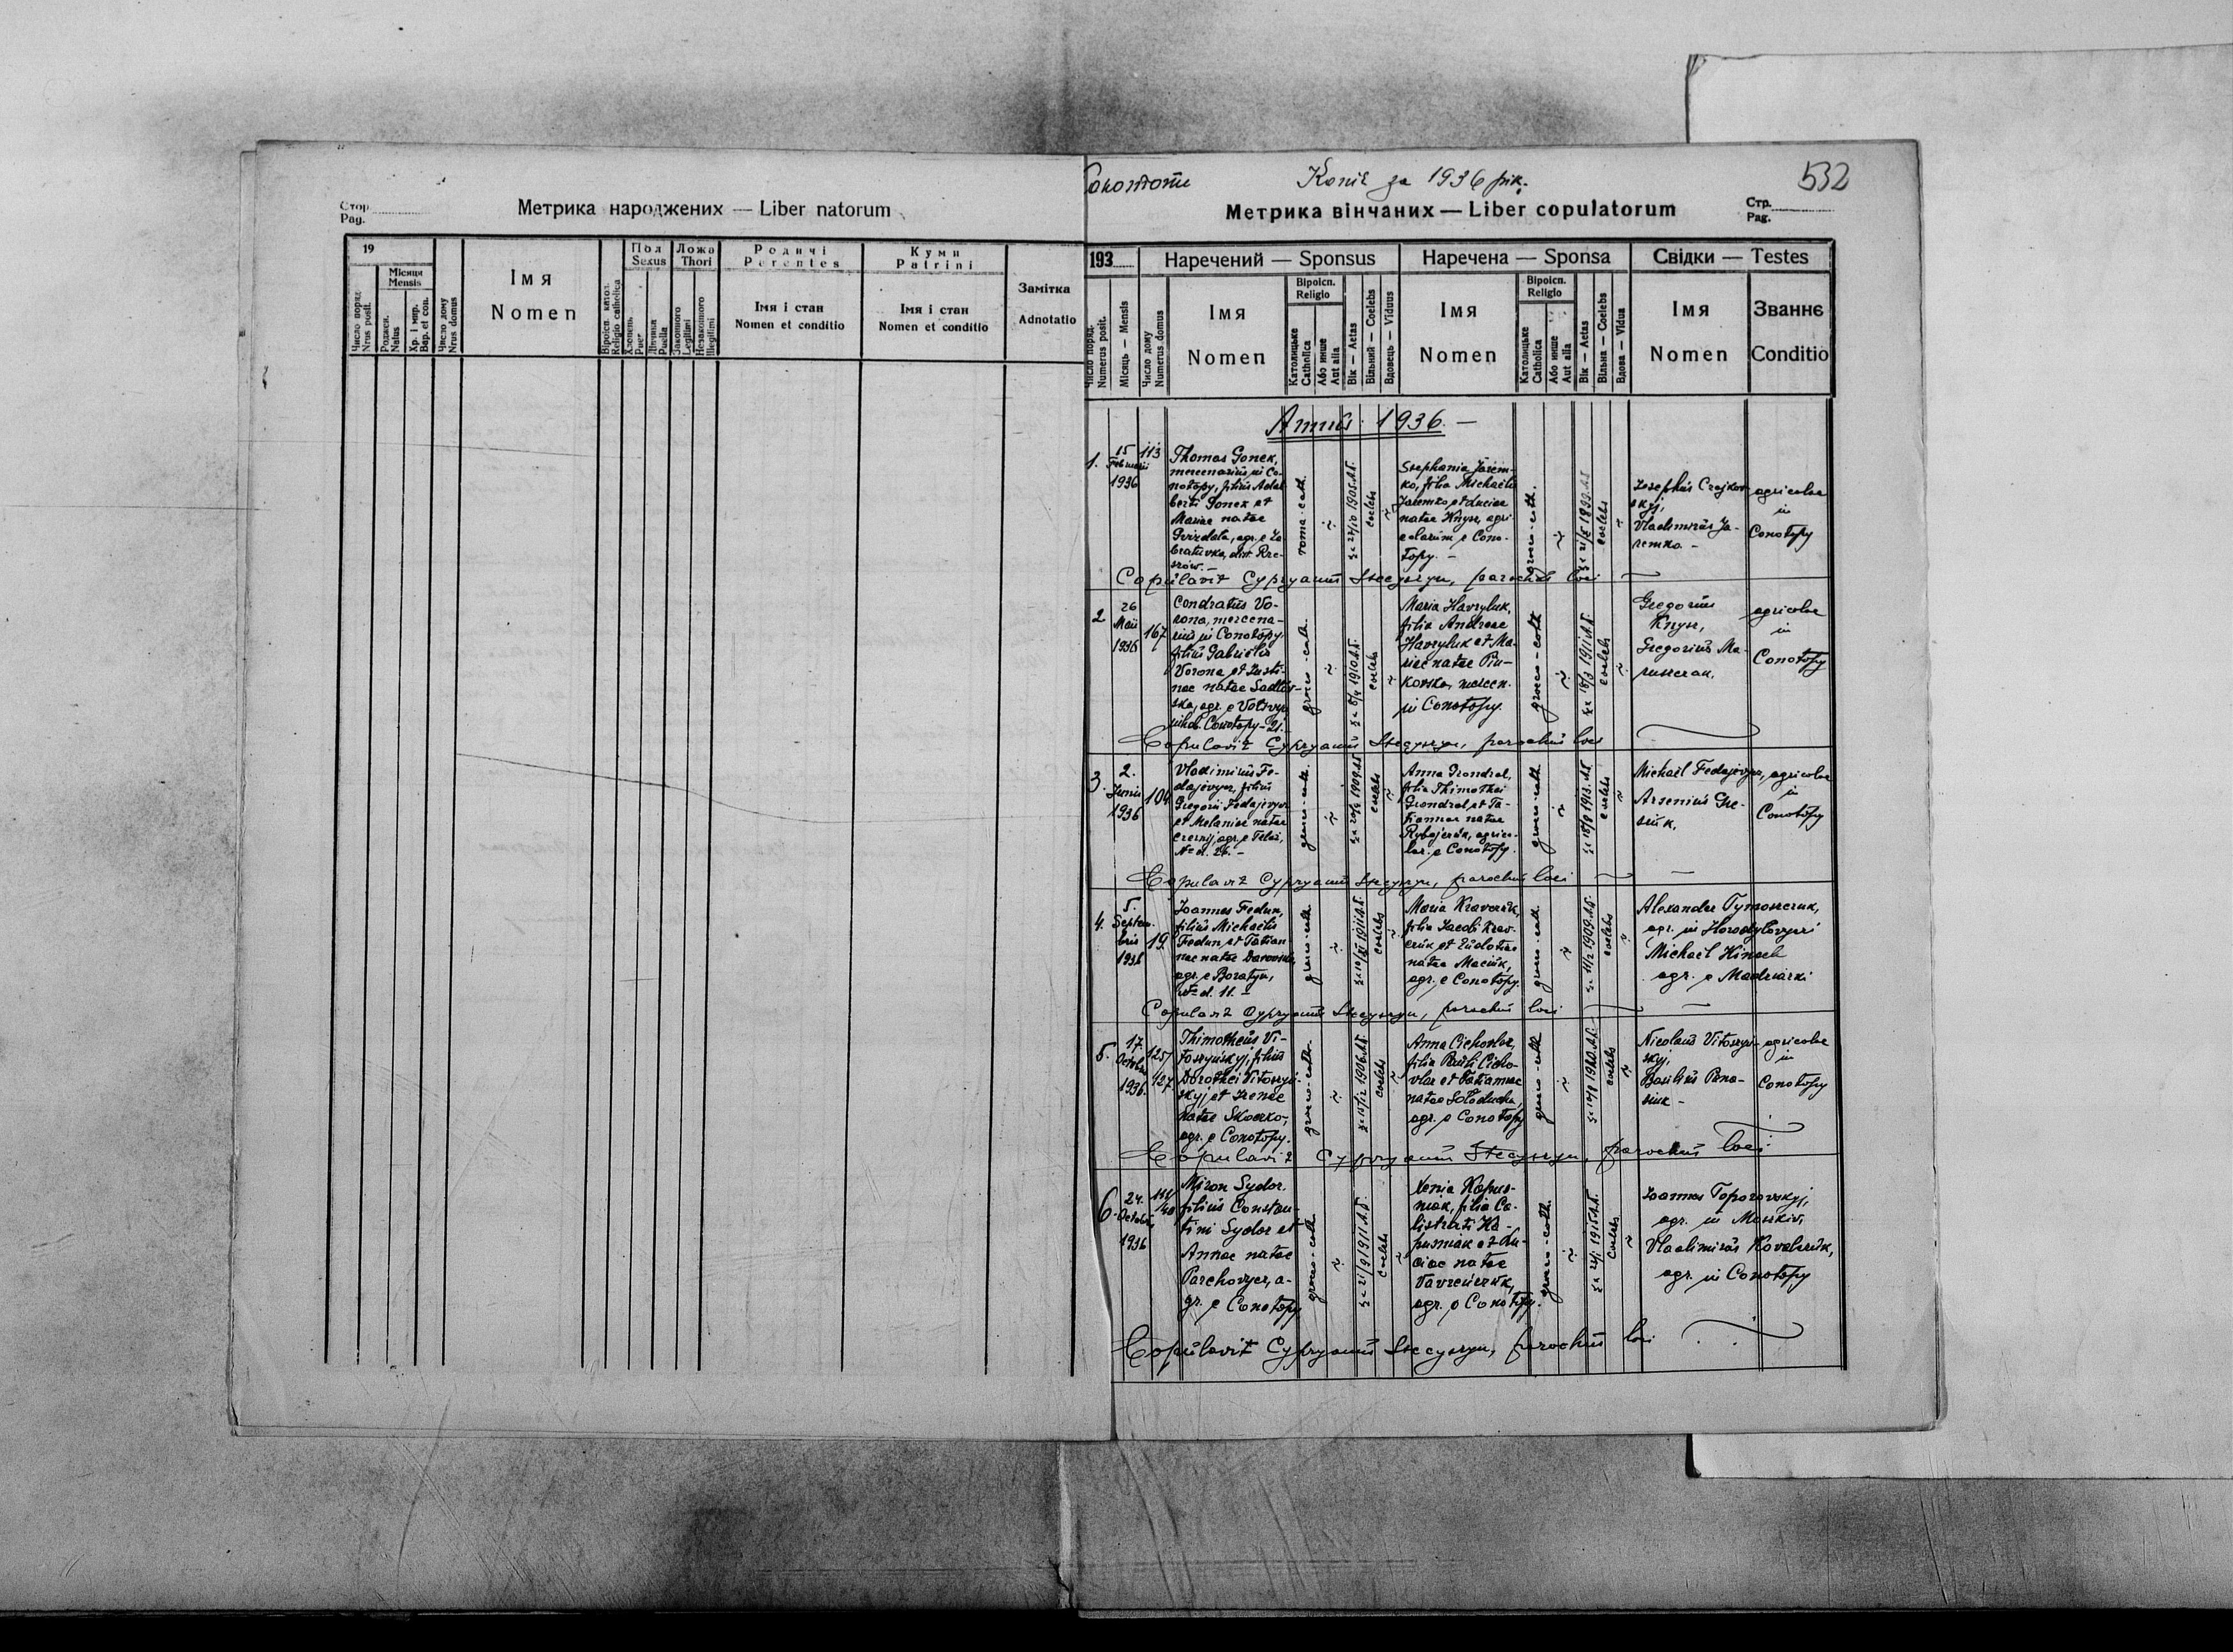 Стор.
Pag.
Метрика народжених — Liber natorum
19
Число поряд.
Nrus posit.
Місяци
Mensis
Роджен.
Natus
Хр. і мир.
Bap. et con.
Число дому
Nrus domus
Імя
Nomen
Віроісп. катол.
Religio catholica
Пол
Sexus
Хлопець
Puer
Дівчина
Puella
Ложа
Thori
Законного
Legitimi
Незаконного
Illegitimi
Родичі
Parentes
Імя і стан
Nomen et conditio
Куми
Patrini
Імя і стан
Nomen et conditio
Замітка
Adnotatio
Копія за 1936 рік.
532
Метрика вінчаних — Liber copulatorum
Стр.
Pag.
193
Число поряд.
Numerus posit.
Місяць — Mensis
Число дому
Numerus domus
Наречений — Sponsus
Імя
Nomen
Віроісп.
Religio
Католицьке
Catholica
Або инше
Aut alia
Вік — Aetas
Вільний — Coelebs
Вдовець — Viduus
Наречена — Sponsa
Імя
Nomen
Віроісп.
Religio
Католицьке
Catholica
Або инше
Aut alia
Вік — Aetas
Вільна — Coelebs
Вдова — Vidua
Свідки — Testes
Імя
Nomen
Званнє
Conditio
Annus 1936. —
1.
15
Februarii
1936
113
Thomas Gonek,
mercenarius in Co-
notopy, filius Adal-
berti Gonek et
Mariae natae
agr. e Za-
bratuvka, distr. Rze-
szów. —
roma-cath.
27/10 1905
coelebs
Stephania Jarem-
ko, filia Michaelis
Jaremko, et Luciae
natae Knysz, agri-
colarum e Cono-
topy. —
graeco-cath.
1899
coelebs
Josephus Czajkov-
skyj,
Vladimirus Ja-
remko. —
agricolae
in
Conotopy
Copulavit Cypryanus Stecyszyn, parochus loci
2
26
Maii
1936
167
Condratus Vo-
rona, mercena-
rius in Conotopy,
filius Gabrielis
Vorona et Justi-
nae natae
agr. e
inhab. Conotopy - 21.
graeco-cath.
1910
coelebs
Maria Havryluk,
filia Andreae
Havryluk et Ma-
riae natae Piu-
kovska, mercen.
in Conotopy.
graeco-cath
1911
coelebs
Gregorius
Knysz,
Gregorius Ma-
ruszczak.
agricolae
in
Conotopy
Copulavit Cypryanus Stecyszyn, parochus loci
3.
2.
Junii
1936
104
Vladimirus Fe-
dajevycz, filius
Gregorii Fedajevycz
et Melaniae natae
Czernij, agr. e Telaż,
№ d. 26. —
graeco-cath.
1909
coelebs
Anna Grondzal,
filia Thimothei
Grondzal, et Ta-
tiannae natae
agrico-
lar. e Conotopy.
graeco-cath
1913
coelebs
Michael Fedajevycz,
Arsenius
agricolae
in
Conotopy
Copulavit Cypryanus Stecyszyn, parochus loci
4.
5.
Septem-
bris
1936
19.
Joannes Fedun,
filius Michaelis
Fedun et Tatian-
nae natae
agr. e Boratyn,
№ d. 11. —
graeco-cath
1911
coelebs
Maria Kravczuk,
filia Jacobi Krav-
czuk et Eudotiae
natae Maciuk,
agr. e Conotopy.
graeco-cath.
1909
coelebs
Alexander Tymoszczuk,
agr. in
Michael
agr. e
Copulavit Cypryanus Stecyszyn, parochus loci
5.
17.
Octobris
1936.
125/
127.
Thimotheus Vi-
toszynskyj, filius
Dorothei Vitoszyn-
skyj et Irenae
natae
agr. e Conotopy.
graeco-cath.
1906
coelebs
Anna
filia Pauli
et Tatiannae
natae Soloducha,
agr. e Conotopy
graeco-cath
coelebs
Nicolaus Vitoszyn-
skyj,
Basilius Pana-
siuk —
agricolae
in
Conotopy
Copulavit Cypryanus Stecyszyn, parochus loci
6.
24.
Octobris
1936
Miron Sydor,
filius Constan-
tini Sydor et
Annae natae
Parchovycz, a-
gr. e Conotopy
graeco-cath
1911
coelebs
Xenia Kapus-
niak, filia Ca-
listrati Ka-
pusniak et Lu-
ciae natae
agr. e Conotopy.
graeco-cath.
1915
coelebs
Joannes Toporovskyj,
agr. in
Vladimirus Kovalczuk,
agr. in Conotopy
Copulavit Cypryanus Stecyszyn, parochus loci